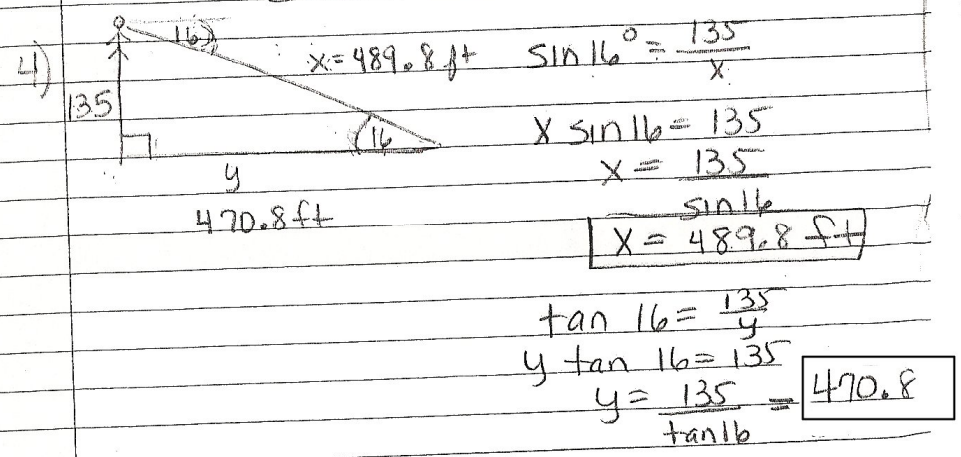 4)
16
x = 489.8 ft
135
16
y
470.8 ft
sin 16° = 135/x
x sin 16 = 135
x = 135/sin 16
x = 489.8 ft
tan 16 = 135/y
y tan 16 = 135
y = 135/tan 16 = 470.8